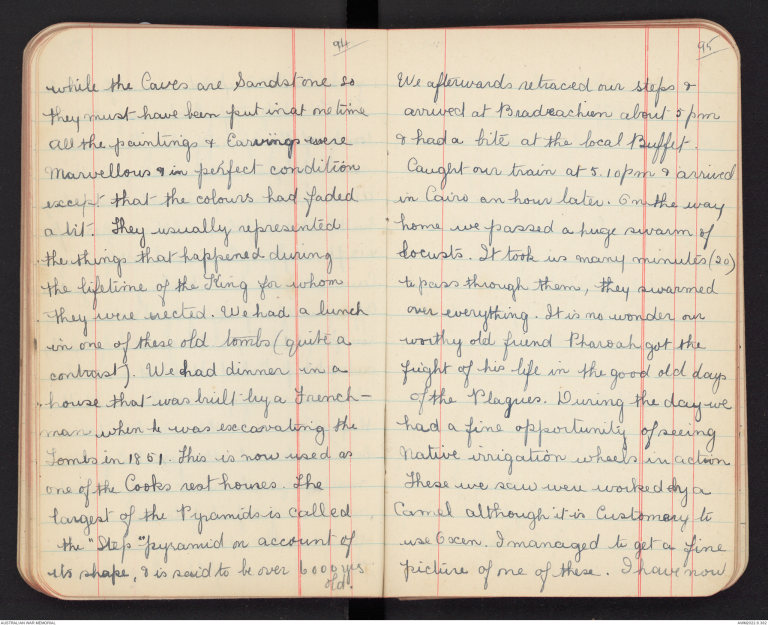 94
while the Caves are Sandstone so
they must have been put in at one time
All the paintings & Carvings were
Marvellous & in perfect condition
except that the colours had faded
a bit. They usually represented
the things that happened during
the lifetime of the King for whom
they were erected. We had a lunch
in one of these old tombs (quite a
contrast). We had dinner in a
house that was built by a French-
man when he was excavating the
Tombs in 1851. This is now used as
one of the Cooks rest houses. The
largest of the Pyramids is called
the "Step" pyramid on account of
its shape, & is said to be over 6000 yrs
old.
95
We afterwards retraced our steps &
arrived at Bradreachien about 5 pm
& had a bite at the local Buffet.
Caught our train at 5.10pm & arrived
in Cairo an hour later. On the way
home we passed a huge swarm of
locusts. It took us many minutes (20)
to pass through them, they swarmed
over everything. It is no wonder our
worthy old friend Pharoah got the
fright of his life in the good old days
of the Plagues. During the day we
had a fine opportunity of seeing
Native irrigation wheels in action
These we saw were worked by a
Camel although it is Customary to
use Oxen. I managed to get a fine
picture of one of these. I have now
AUSTRALIAN WAR MEMORIAL